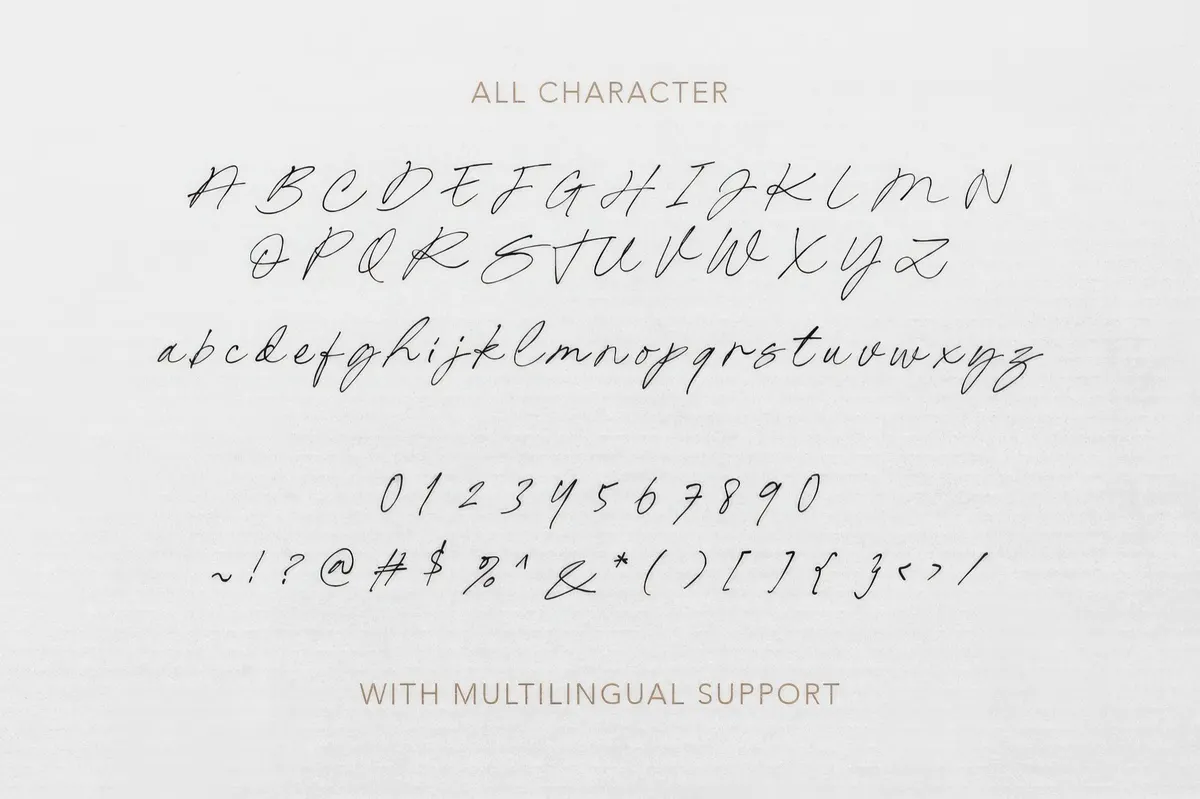 ALL CHARACTER
A B C D E F G H I J K L M N
O P Q R S T U V W X Y Z
a b c d e f g h i j k l m n o p q r s t u v w x y z
0 1 2 3 4 5 6 7 8 9 0
~ ! ? @ # $ % ^ & * ( ) [ ] { } < > /
WITH MULTILINGUAL SUPPORT